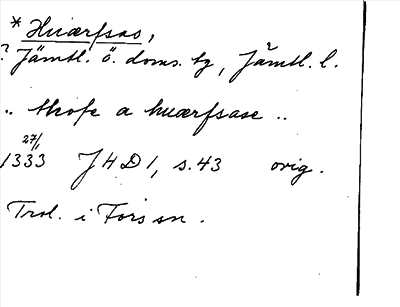 * Huærfsas,
? Jämtl. ö. doms. bg, Jämtl. l.
.. skofe a huærfsase ..
27/1
1333 JHD 1, s. 43 orig.
Trol. i Fors sn.